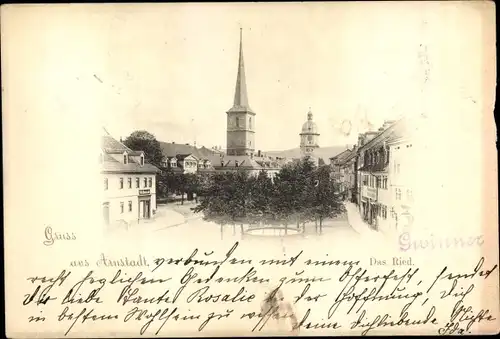 Gruss
aus Arnstadt, verbunden mit einem
Das Ried.
Gwinner
recht herzlichen Gedanken zum Osterfest, sendet
Dir liebe Tante Rosalie in der Hoffnung, Dich
in bestem Wohlsein zu wissen Deine Dichliebende Nichte
Ida.